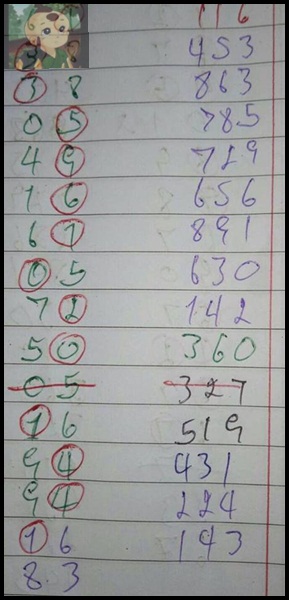 116
453
38 863
05 785
49 729
16 656
67 891
05 630
72 142
50 360
05 327
16 519
94 431
94 224
16 143
83